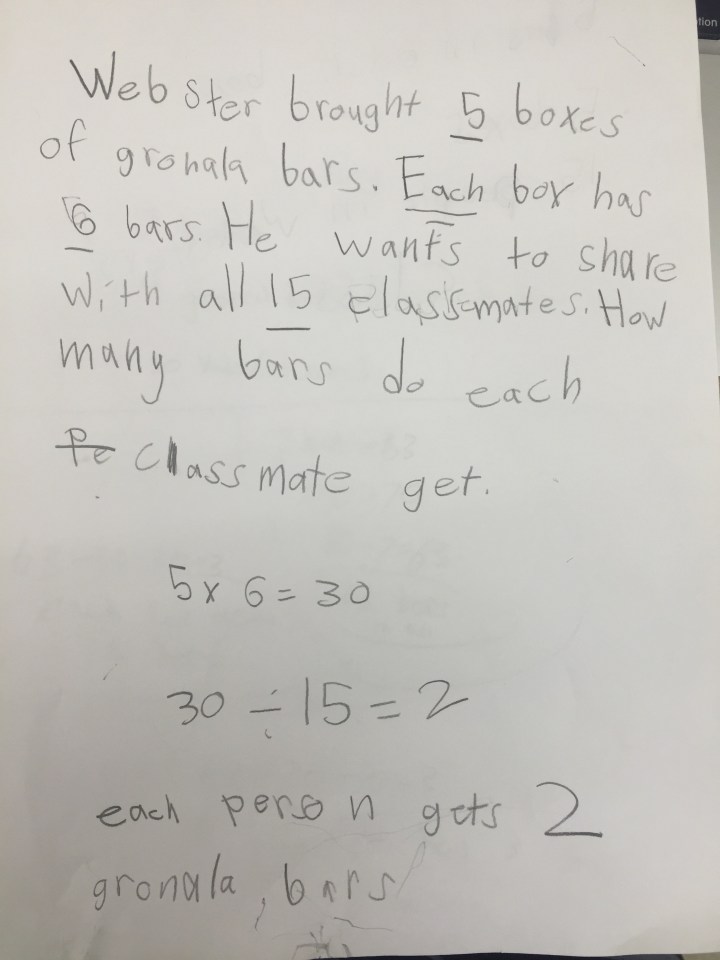 tion
Webster brought 5 boxes
of gronala bars. Each box has
6 bars. He wants to share
with all 15 classmates. How
many bars do each
Pe classmate get.
5 x 6 = 30
30 ÷ 15 = 2
each person gets 2
gronala, bars